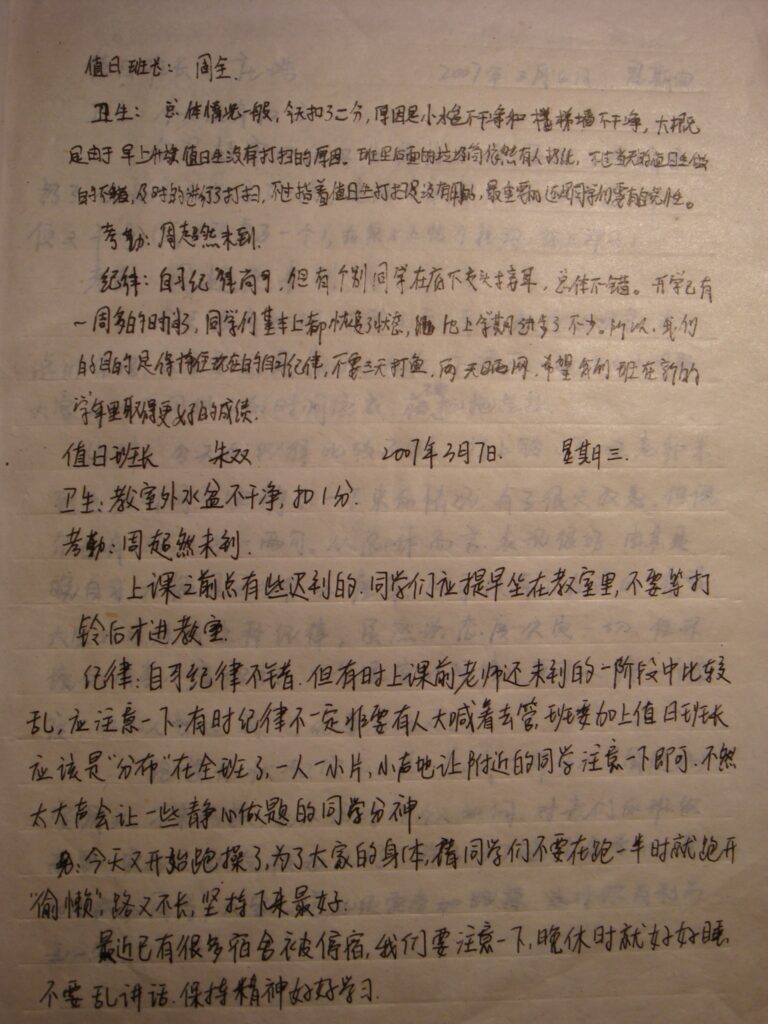 值日班长: 周全.
卫生: 总体情况一般, 今天扣了二分, 原因是小水盆不干净和楼梯墙不干净, 大概
是由于早上补读值日生没有打扫的原因。班里后面的垃圾筒依然有人乱扔, 不过当天的值日生做
的不错, 及时的进行了打扫, 不过指着值日生打扫是没有用的, 最重要的还是同学们要有自觉性。
考勤: 周超然未到.
纪律: 自习纪律尚可, 但有个别同学在底下交头接耳, 总体不错。开学已有
一周多的时间了, 同学们基本上都恢复了状态, 比上学期进步了不少。所以, 我们
的目的是保持住现在的自习纪律, 不要三天打鱼, 两天晒网. 希望我们班在新的
学年里取得更好的成绩.
值日班长 朱双 2007年3月7日. 星期三.
卫生: 教室外水盆不干净, 扣1分.
考勤: 周超然未到.
上课之前点有些迟到的. 同学们应提早坐在教室里, 不要等打
铃后才进教室.
纪律: 自习纪律不错. 但有时上课前老师还未到的一阶段中比较
乱, 应注意一下. 有时纪律不一定非要有人大喊着去管, 班委加上值日班长
应该是"分布"在全班了, 一人一小片, 小声地让附近的同学注意一下即可. 不然
太大声会让一些静心做题的同学分神.
另: 今天又开始跑操了, 为了大家的身体, 请同学们不要在跑一半时就跑开
"偷懒", 路又不长, 坚持下来最好.
最近已有很多宿舍被停宿, 我们要注意一下, 晚休时就好好睡
不要乱讲话. 保持精神好好学习.